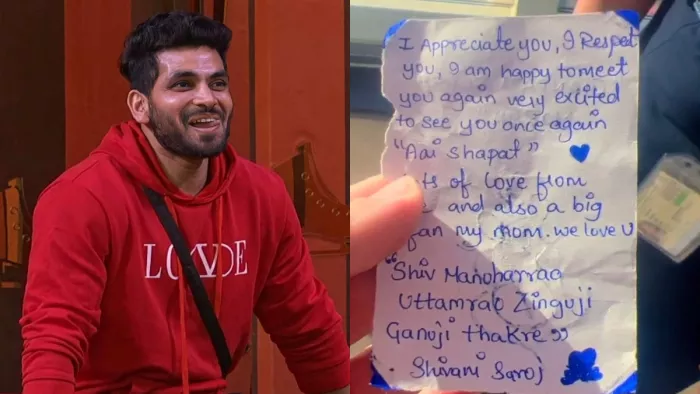 I Appreciate you, I Respect
you, I am happy to meet
you again very excited
to see you once again
"Aai Shapat"
of love from
and also a big
fan my mom. we love U
"Shiv Manoharrao
Uttamrao Zinguji
Ganuji Thakre"
Shivani Saroj